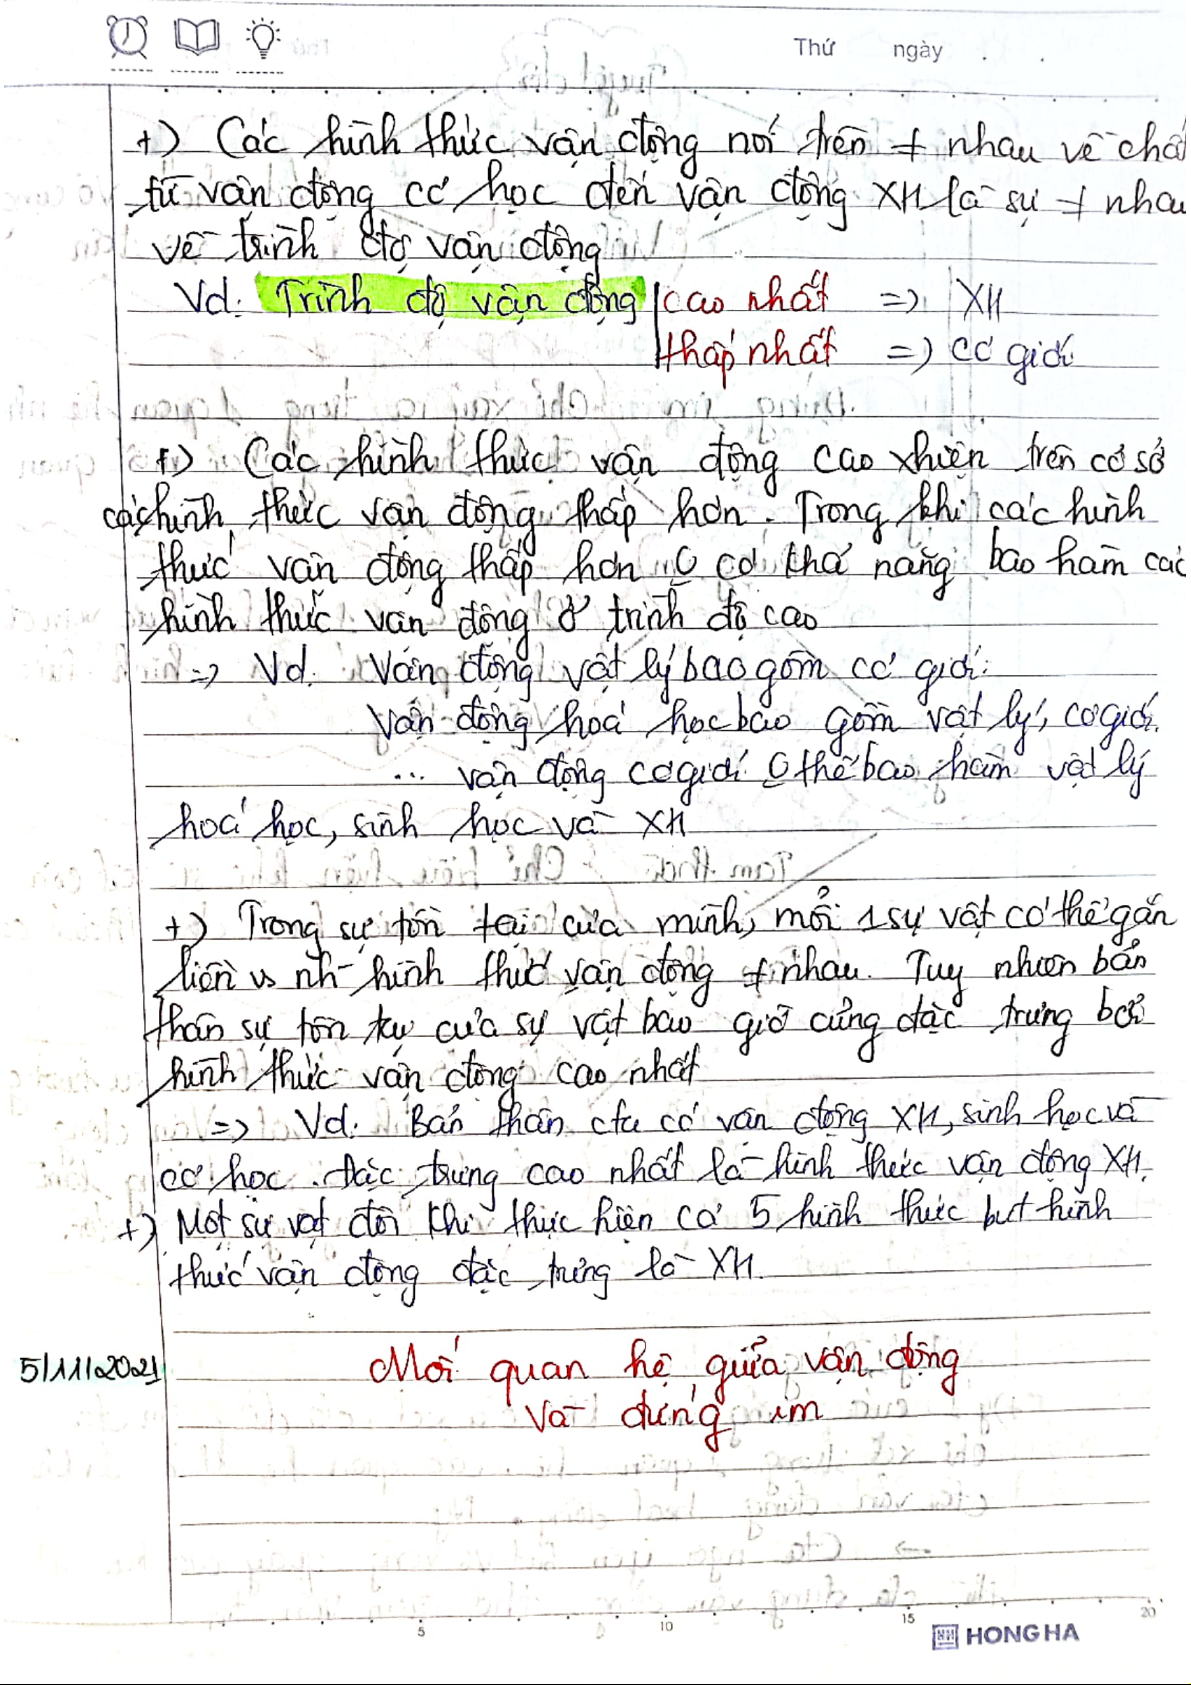 Thứ ngày . .
+) Các hình thức vận động nói trên ≠ nhau về chấ
từ vận động cơ học đến vận động XH là sự ≠ nhau
về trình độ vận động
Vd: Trình độ vận động | cao nhất => XH
| thấp nhất => cơ giới
+) Các hình thức vận động cao xhiện trên cơ sở
các hình thức vận động thấp hơn. Trong khi các hình
thức vận động thấp hơn 0 có khả năng bao hàm các
hình thức vận động ở trình độ cao
=> Vd: Vận động vật lý bao gồm cơ giới.
Vận động hoá học bao gồm vật lý, cơ giới.
... vận động cơ giới 0 thể bao hàm vật lý
hoá học, sinh học và XH
+) Trong sự tồn tại của mình, mỗi 1 sự vật có thể gắn
liền vs nh~ hình thức vận động ≠ nhau. Tuy nhiên bản
thân sự tồn tại của sự vật bao giờ cũng đặc trưng bởi
hình thức vận động cao nhất
=> Vd: Bản thân cta có vận động XH, sinh học và
cơ học. Đặc trưng cao nhất là hình thức vận động XH.
+) Một sự vật đôi khi thực hiện cả 5 hình thức but hình
thức vận động đặc trưng là XH.
5/11/2021 Mối quan hệ giữa vận động
và đứng im
5 10 15 20
HONG HA